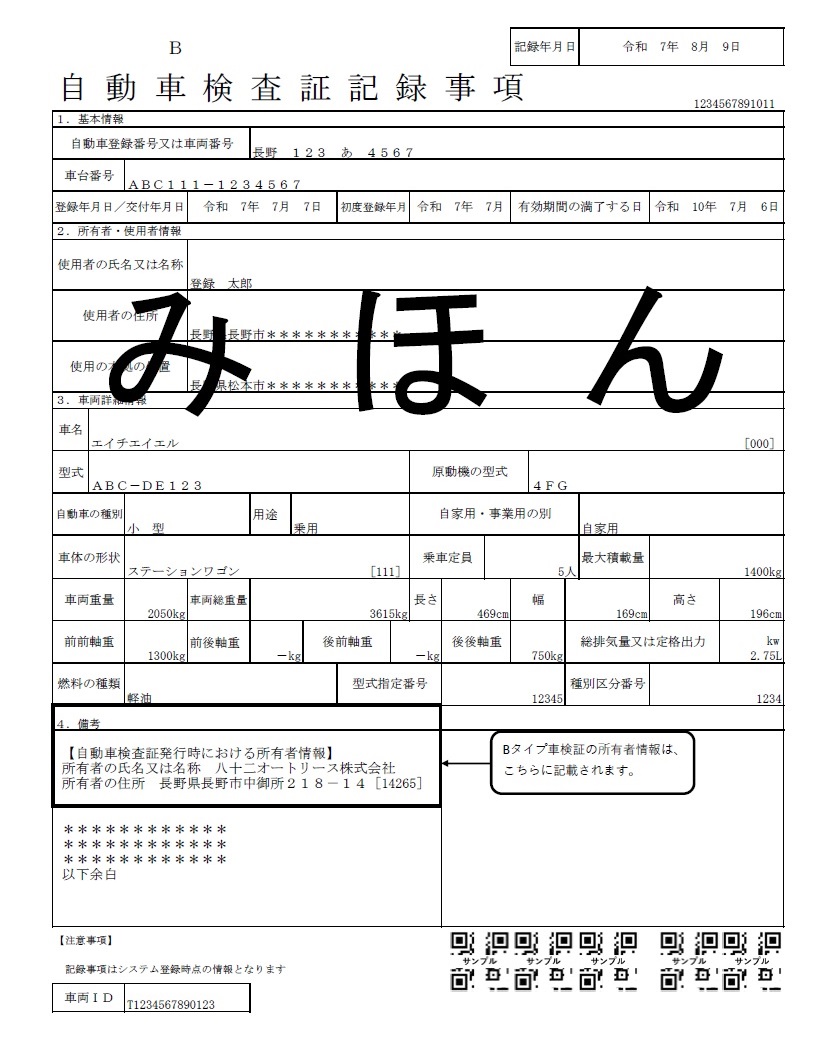 B
記録年月日 令和 7年 8月 9日
自動車検査証記録事項
1234567891011
1．基本情報
自動車登録番号又は車両番号 長野 １２３ あ ４５６７
車台番号 ＡＢＣ１１１－１２３４５６７
登録年月日／交付年月日 令和 7年 7月 7日 初度登録年月 令和 7年 7月 有効期間の満了する日 令和 10年 7月 6日
2．所有者・使用者情報
使用者の氏名又は名称 登録 太郎
使用者の住所 長野県長野市＊＊＊＊＊＊＊＊＊＊＊
使用の本拠の位置 長野県松本市＊＊＊＊＊＊＊＊＊＊＊
みほん
3．車両詳細情報
車名 エイチエイエル [000]
型式 ＡＢＣ－ＤＥ１２３ 原動機の型式 ４ＦＧ
自動車の種別 小 型 用途 乗用 自家用・事業用の別 自家用
車体の形状 ステーションワゴン [111] 乗車定員 5人 最大積載量 1400kg
車両重量 2050kg 車両総重量 3615kg 長さ 469cm 幅 169cm 高さ 196cm
前前軸重 1300kg 前後軸重 －kg 後前軸重 －kg 後後軸重 750kg 総排気量又は定格出力 kw 2.75L
燃料の種類 軽油 型式指定番号 12345 種別区分番号 1234
4．備考
【自動車検査証発行時における所有者情報】
所有者の氏名又は名称 八十二オートリース株式会社
所有者の住所 長野県長野市中御所２１８－１４［14265］
Bタイプ車検証の所有者情報は、
こちらに記載されます。
＊＊＊＊＊＊＊＊＊＊＊＊
＊＊＊＊＊＊＊＊＊＊＊＊
＊＊＊＊＊＊＊＊＊＊＊＊
以下余白
【注意事項】
記録事項はシステム登録時点の情報となります
サンプル サンプル サンプル サンプル サンプル
車両ＩＤ T1234567890123